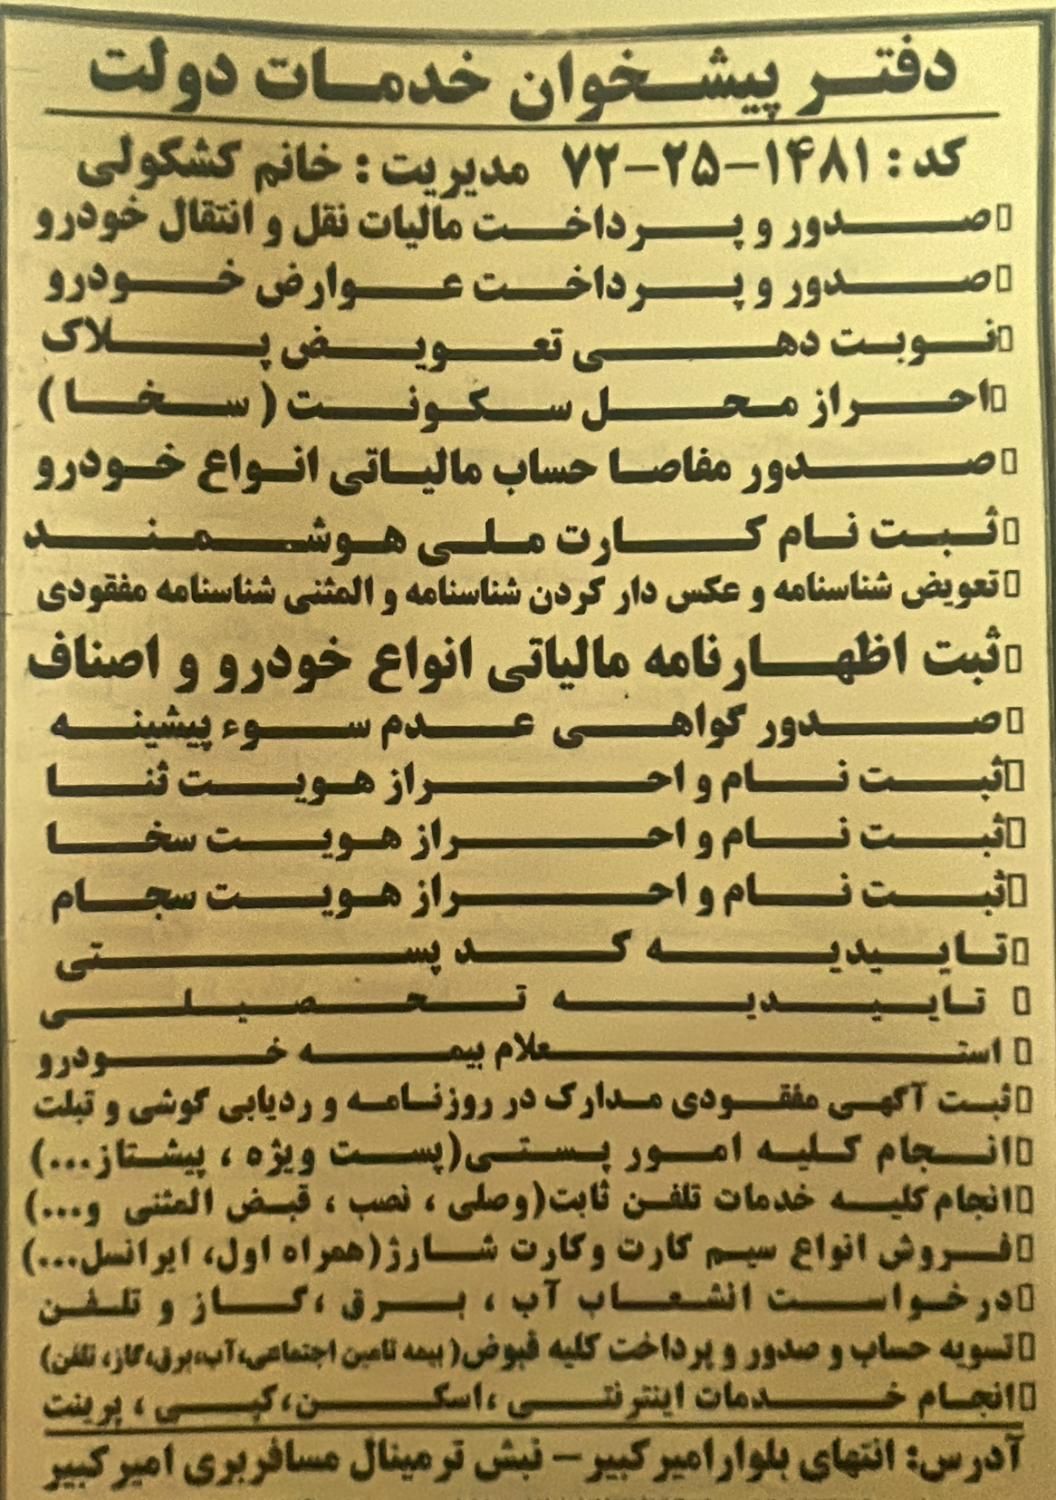 دفتر پیشخوان خدمات دولت
کد : ۱۴۸۱-۲۵-۷۲ مدیریت : خانم کشکولی
▯صدور و پرداخت مالیات نقل و انتقال خودرو
▯صدور و پرداخت عوارض خودرو
▯نوبت دهی تعویض پلاک
▯احراز محل سکونت ( سخا )
▯صدور مفاصا حساب مالیاتی انواع خودرو
▯ثبت نام کارت ملی هوشمند
▯تعویض شناسنامه و عکس دار کردن شناسنامه و المثنی شناسنامه مفقودی
▯ثبت اظهارنامه مالیاتی انواع خودرو و اصناف
▯صدور گواهی عدم سوء پیشینه
▯ثبت نام و احراز هویت ثنا
▯ثبت نام و احراز هویت سخا
▯ثبت نام و احراز هویت سجام
▯تاییدیه کد پستی
▯ تاییدیه تحصیلی
▯ استعلام بیمه خودرو
▯ثبت آگهی مفقودی مدارک در روزنامه و ردیابی گوشی و تبلت
▯انجام کلیه امور پستی(پست ویژه ، پیشتاز...)
▯انجام کلیه خدمات تلفن ثابت(وصلی ، نصب ، قبض المثنی و...)
▯فروش انواع سیم کارت وکارت شارژ(همراه اول، ایرانسل...)
▯درخواست انشعاب آب ، برق ،گاز و تلفن
▯تسویه حساب و صدور و پرداخت کلیه قبوض( بیمه تامین اجتماعی،آب،برق،گاز، تلفن)
▯انجام خدمات اینترنتی ،اسکن،کپی ، پرینت
آدرس: انتهای بلوارامیرکبیر – نبش ترمینال مسافربری امیرکبیر